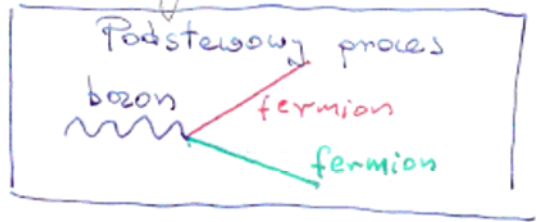 Podstawowy proces
bozon
fermion
fermion